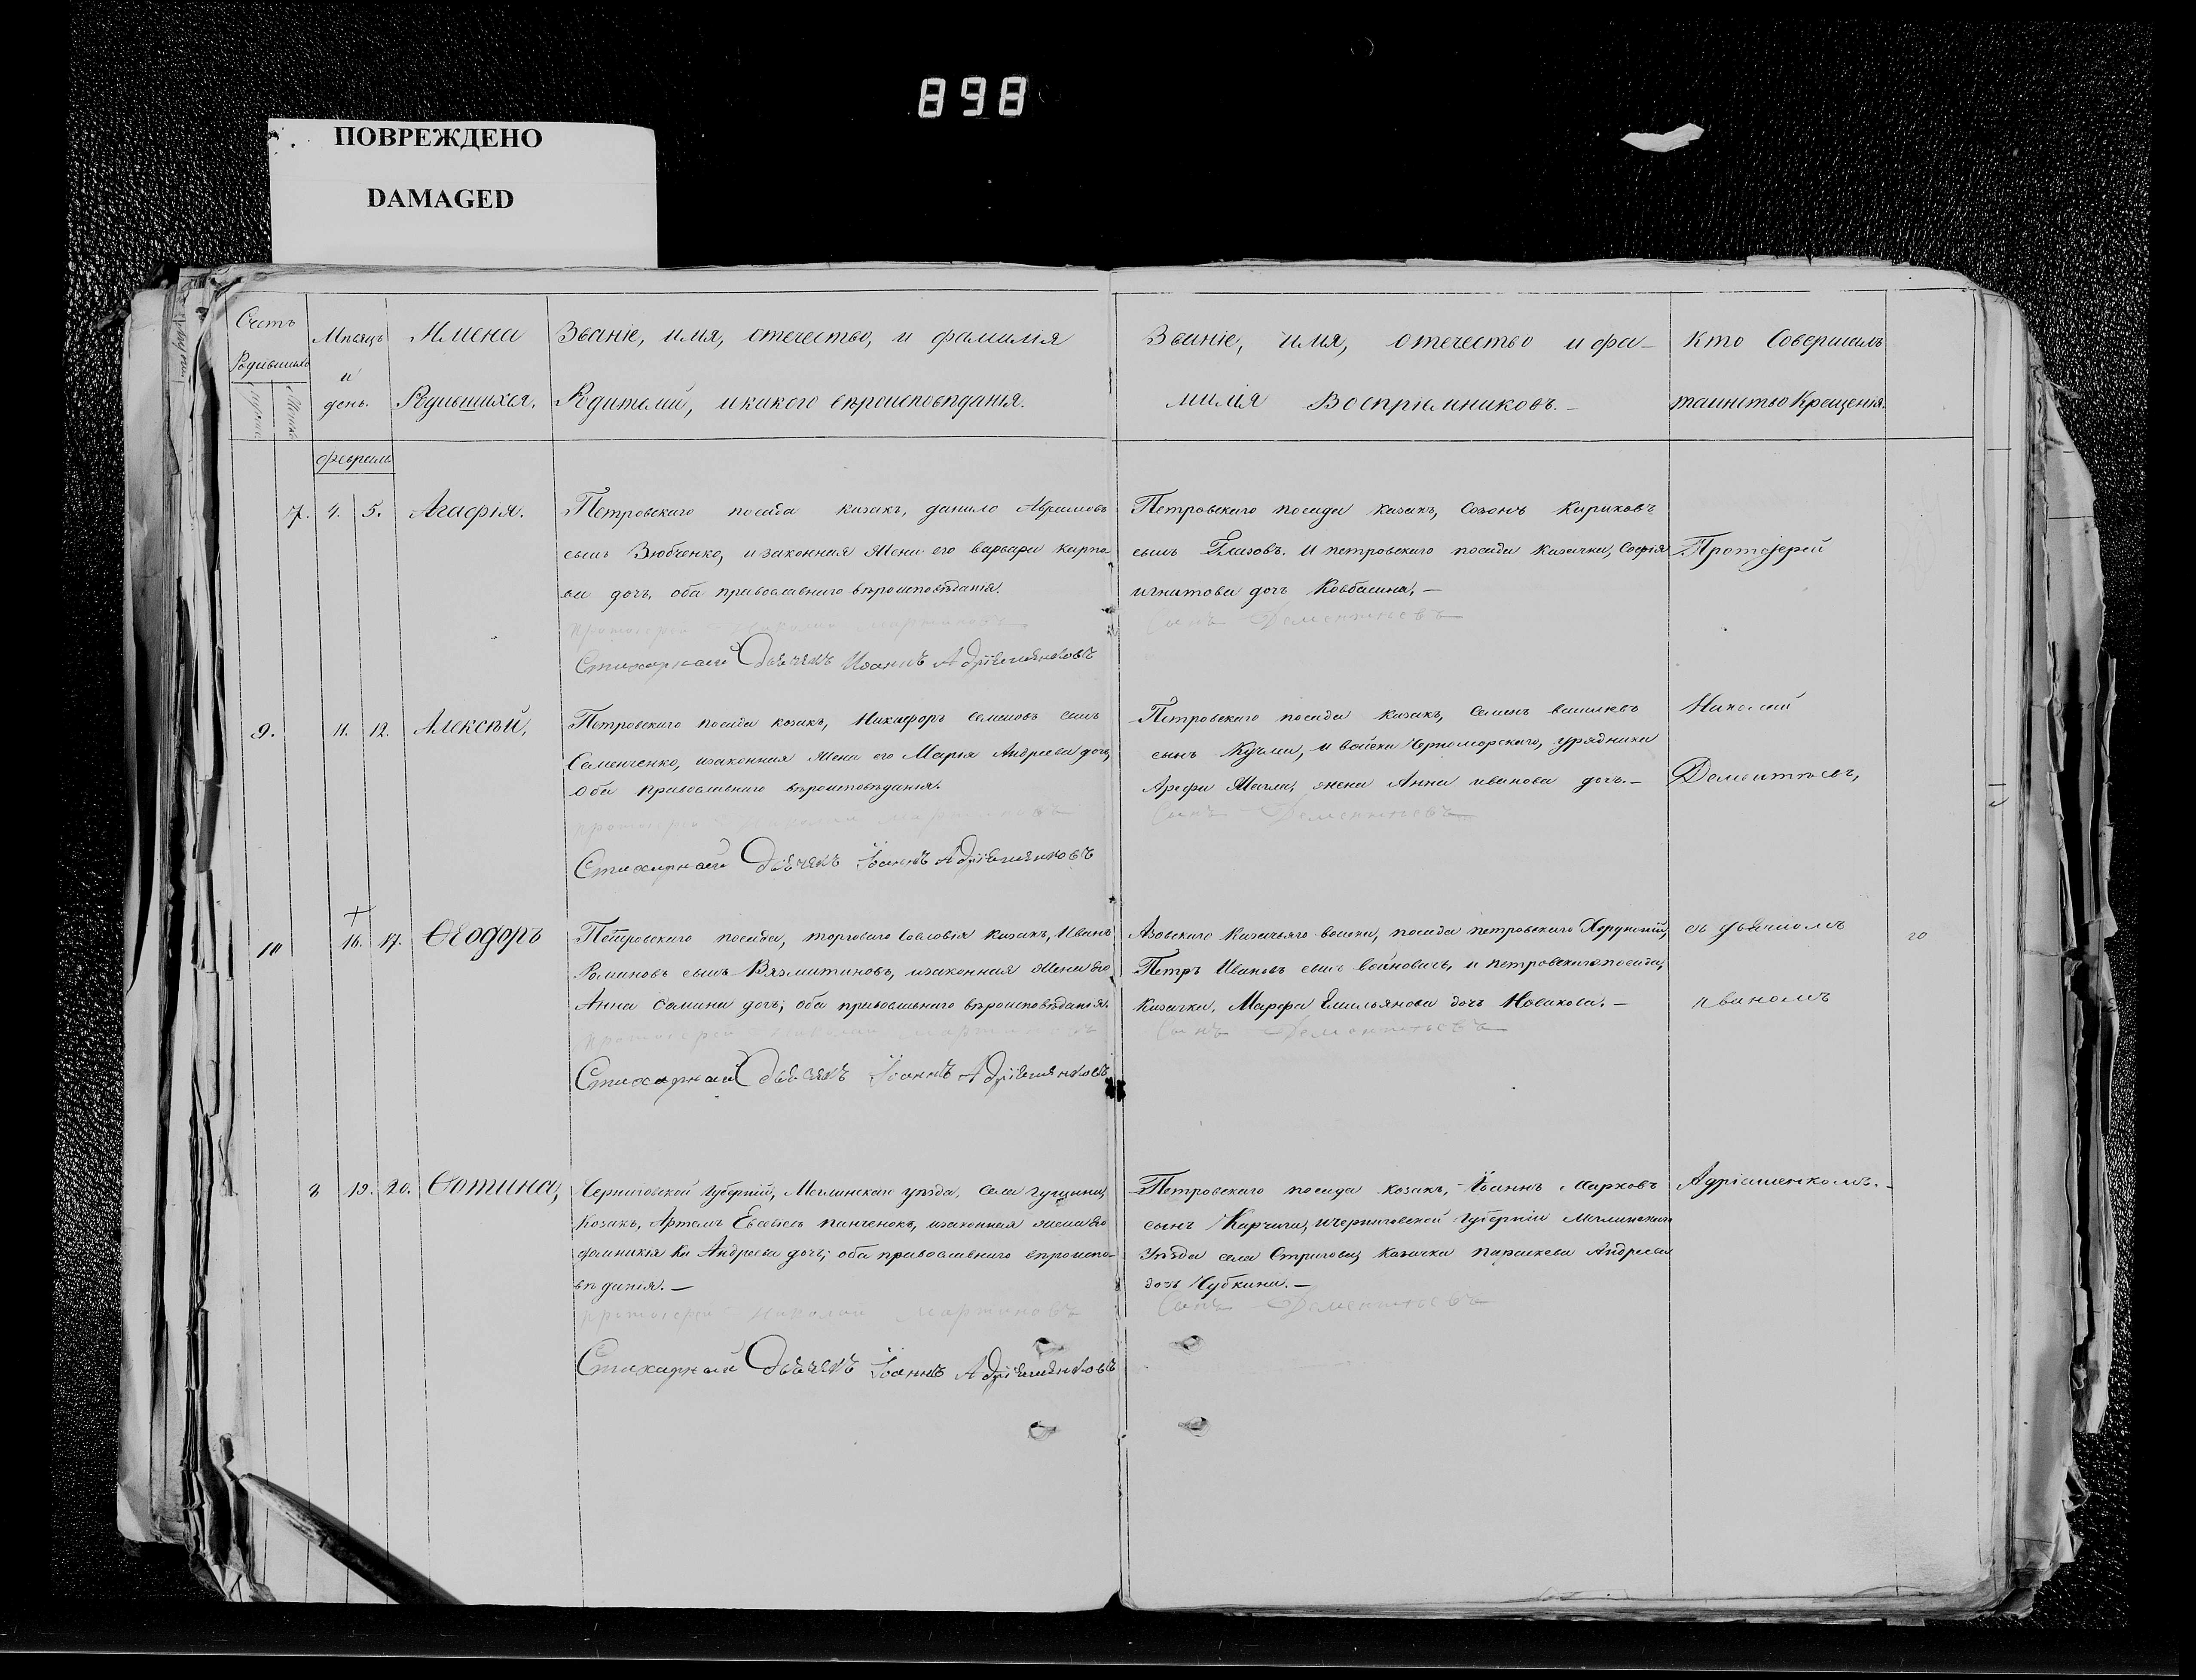 898
ПОВРЕЖДЕНО
DAMAGED
Счетъ Родившихся
Мѣсяцъ и день.
Имена Родившихся.
Званіе, имя, отечество, и фамилія
Родителей, и какого вѣроисповѣданія.
Званіе, имя, отечество и фа-
милія Воспріемниковъ. -
Кто Совершалъ
таинство Крещенія.
Февраль
7. 4. 5. Агафія.
Петровскаго посада казакъ, данило Абрамовъ
сынъ Зюбченко, и законная жена его варвара карпо
ва дочь, оба православнаго вѣроисповѣданія.
протоіерей Николай Мартиновъ
Стихарный Дьячекъ Иоаннъ Адріяшенковъ
Петровскаго посада казакъ, Созонъ Кириковъ
сынъ Глазовъ. и петровскаго посада казачка, Софія
игнатова дочь Ковбасина. —
Сынъ Дементьевъ
Протоіерей
9. 11. 12. Алексѣй,
Петровскаго посада козакъ, Никифоръ Семеновъ сынъ
Семенченко, изаконная жена его Марія Андреева дочь,
оба православнаго вѣроисповѣданія.
протоіерей Николай Мартиновъ
Стихарный Дьячекъ Іоаннъ Адріяшенковъ
Петровскаго посада казакъ, Семенъ василевъ
сынъ Кучма, и войска Черноморскаго, урядника
Арефы жена Анна иванова дочь. —
Сынъ Дементьевъ
Николай
Дементьевъ,
10 16. 17. Ѳеодоръ
Петровскаго посада, торговаго Сословія казакъ, Иванъ
Романовъ сынъ Вязмитиновъ, изаконная жена его
Анна Савина дочь; оба православнаго вѣроисповѣданія.
протоіерей Николай Мартиновъ
Стихарный Дьячекъ Іоаннъ Адріяшенковъ
Азовскаго Казачьяго войска, посада петровскаго Хорунжій,
Петръ Ивановъ сынъ Войновичъ, и петровскаго посада,
казачка, Марфа Емильянова дочь Новакова. —
Сынъ Дементьевъ
съ дьячкомъ
иваномъ
20
8 19. 20. Ѳотина,
Черниговской Губерніи, Мглинскаго уѣзда, села
Козакъ, Артемъ Евсеевъ панченокъ, изаконная жена его
домникія Андреева дочь; оба православнаго вѣроиспо-
вѣданія. —
протоіерей Николай Мартиновъ
Стихарный Дьячекъ Іоаннъ Адріяшенковъ
Петровскаго посада козакъ, Іоаннъ Марковъ
сынъ Карчига, ичерниговской Губерніи Мглинскаго
Уѣзда села Казачка параскева Андреева
дочь Чубкина. —
Сынъ Дементьевъ
Адріашенкомъ. —